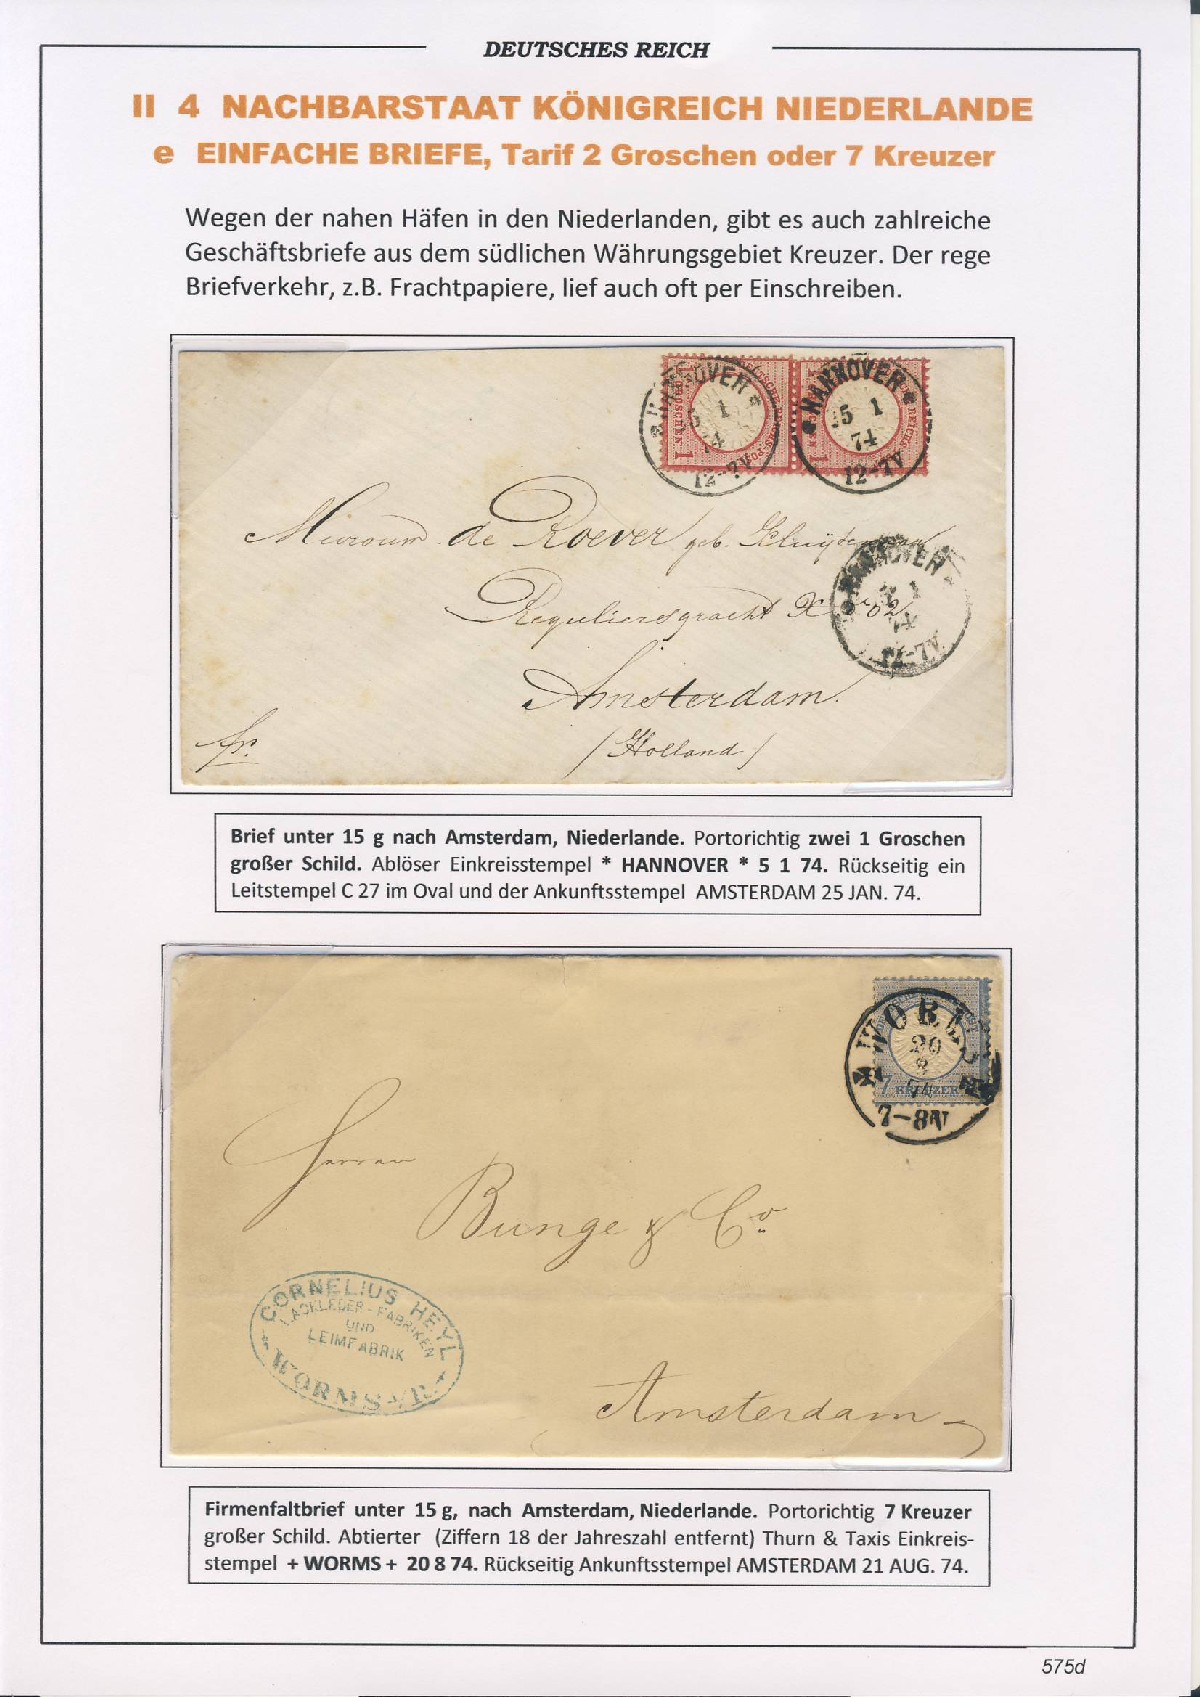 DEUTSCHES REICH
II 4 NACHBARSTAAT KÖNIGREICH NIEDERLANDE
e EINFACHE BRIEFE, Tarif 2 Groschen oder 7 Kreuzer
Wegen der nahen Häfen in den Niederlanden, gibt es auch zahlreiche
Geschäftsbriefe aus dem südlichen Währungsgebiet Kreuzer. Der rege
Briefverkehr, z.B. Frachtpapiere, lief auch oft per Einschreiben.
* HANNOVER *
5 1
74
12-7V
* HANNOVER *
5 1
74
12-7V
de Roever geb.
HANNOVER
1
74
12-7V
Reguliersgracht
Amsterdam.
/Holland/
fr.
Brief unter 15 g nach Amsterdam, Niederlande. Portorichtig zwei 1 Groschen
großer Schild. Ablöser Einkreisstempel * HANNOVER * 5 1 74. Rückseitig ein
Leitstempel C 27 im Oval und der Ankunftsstempel AMSTERDAM 25 JAN. 74.
WORMS
20
8
74
7 KREUZER
7-8N
Herren
Bunge & Co.
CORNELIUS HEYL
LACKLEDER-FABRIKEN
UND
LEIMFABRIK
WORMS a/R.
Amsterdam
Firmenfaltbrief unter 15 g, nach Amsterdam, Niederlande. Portorichtig 7 Kreuzer
großer Schild. Abtierter (Ziffern 18 der Jahreszahl entfernt) Thurn & Taxis Einkreis-
stempel + WORMS + 20 8 74. Rückseitig Ankunftsstempel AMSTERDAM 21 AUG. 74.
575d